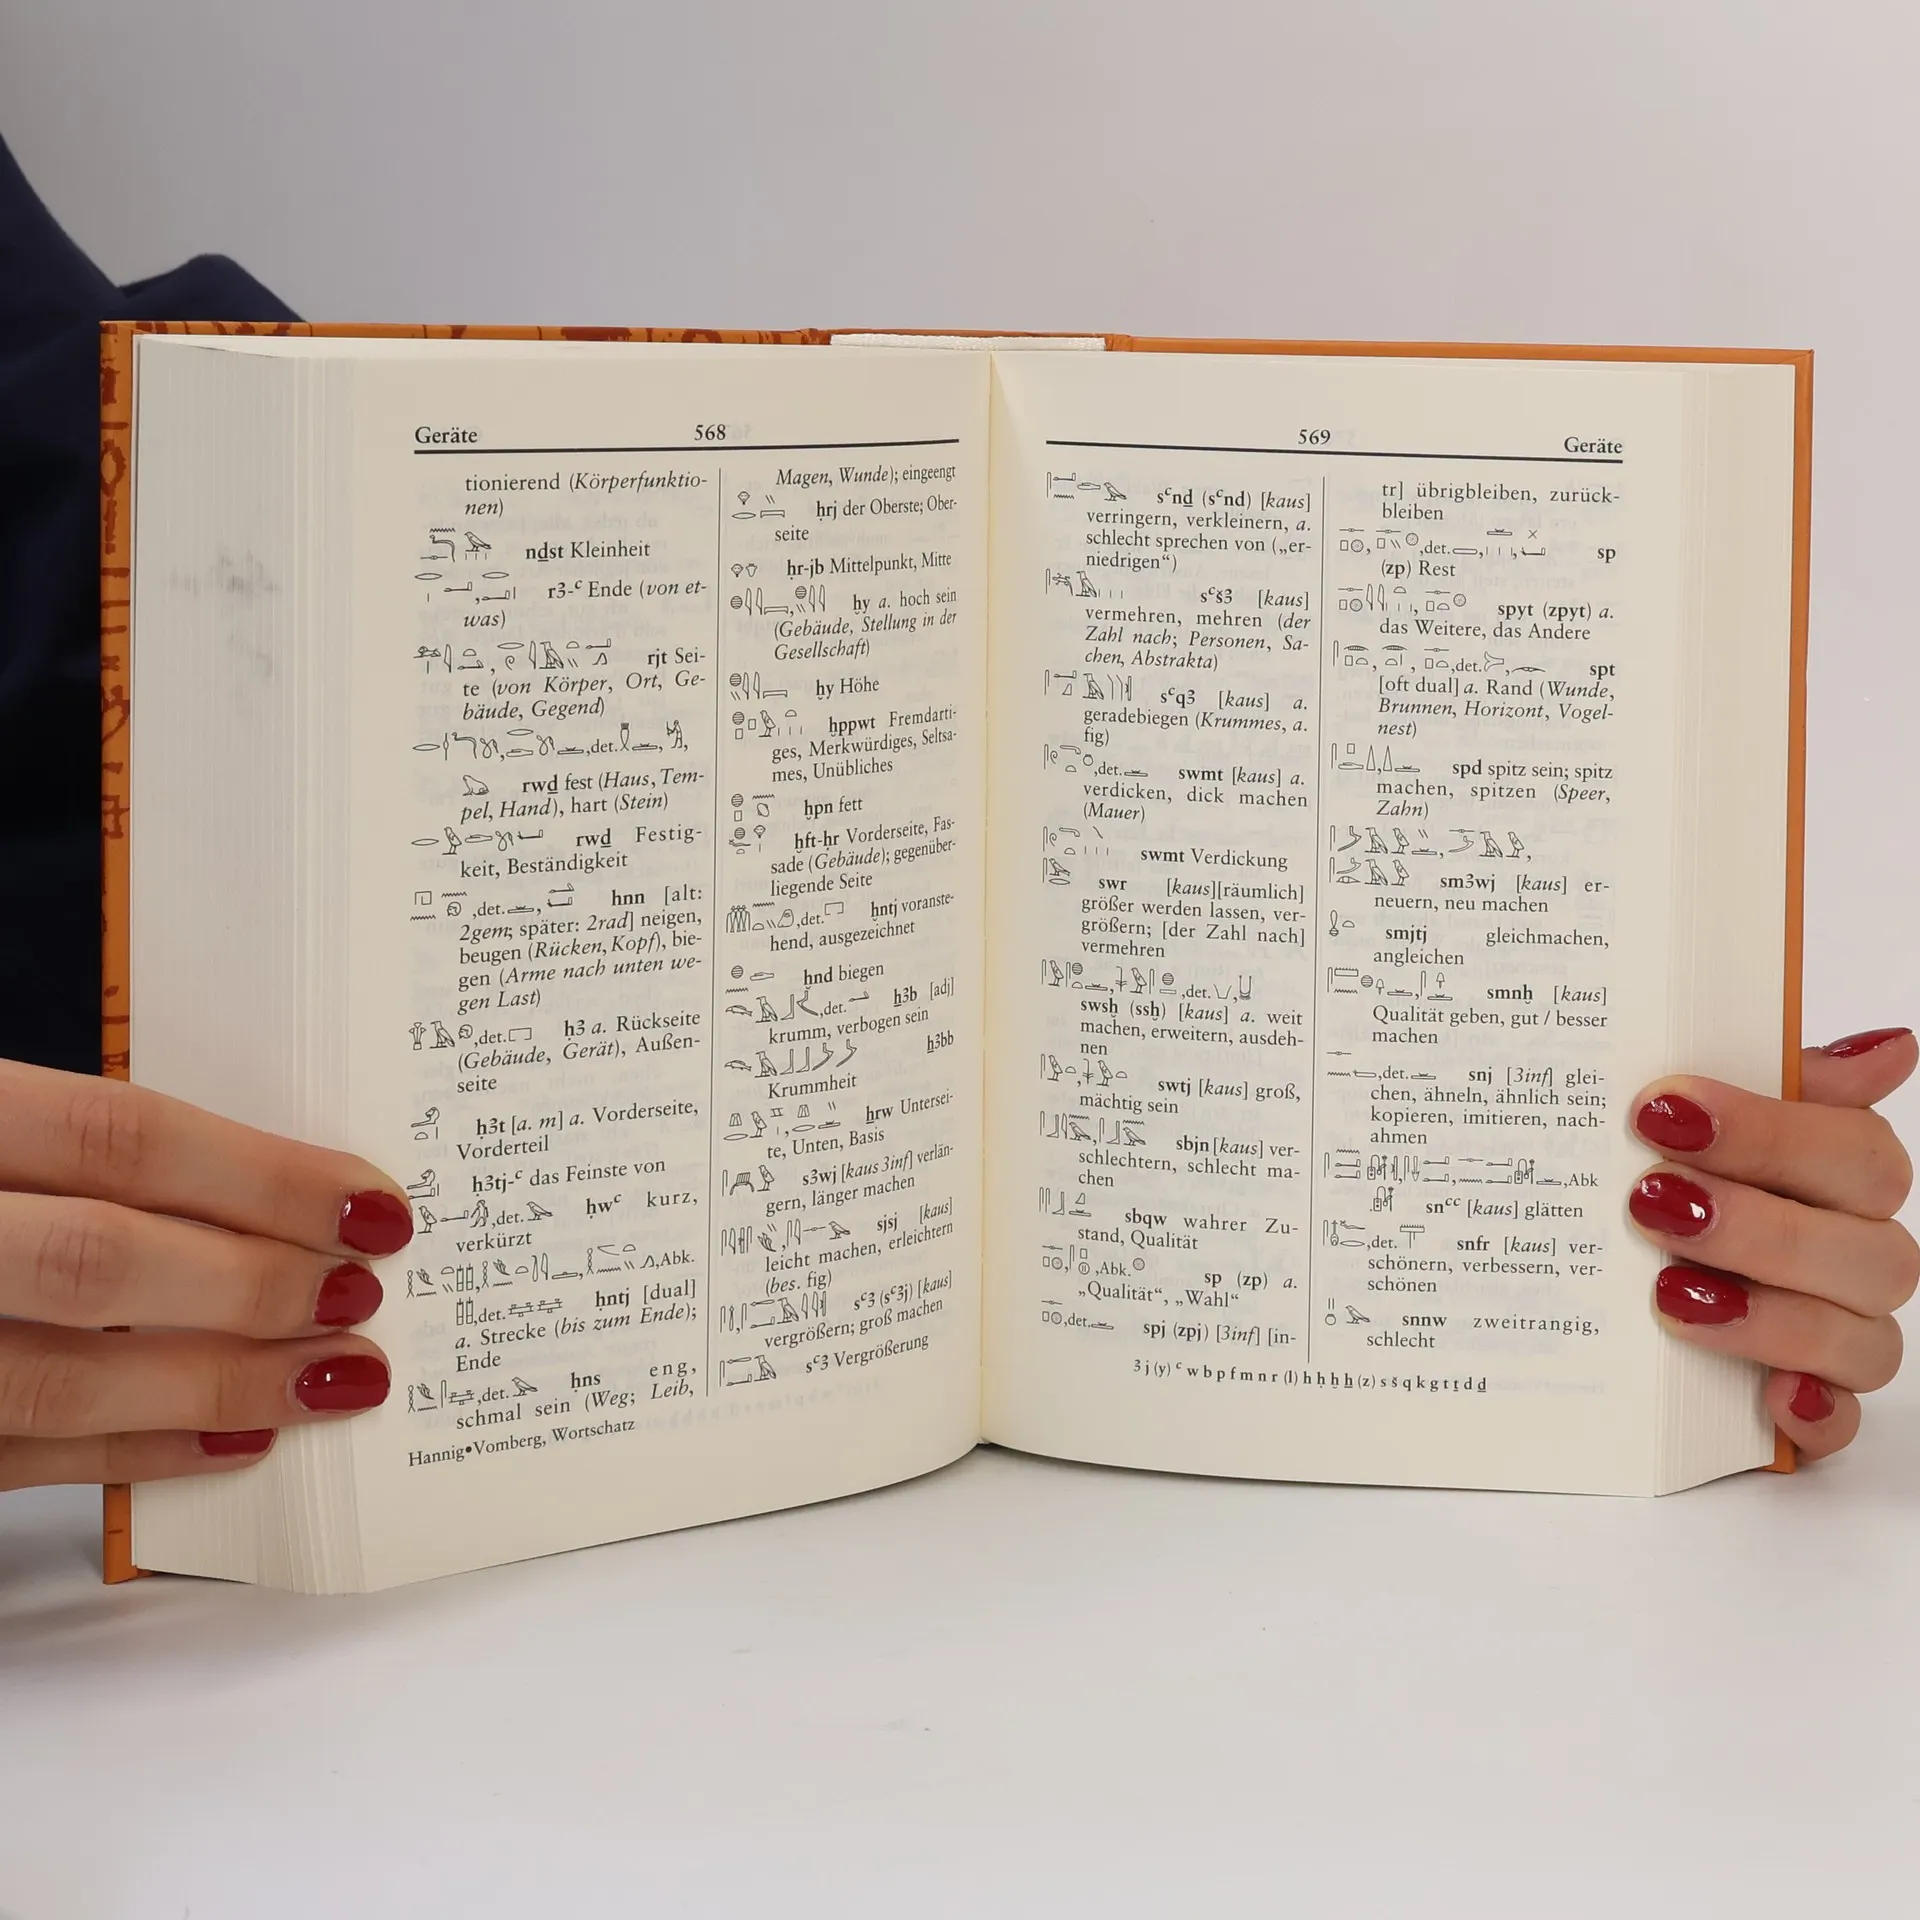 Geräte 568
tionierend (Körperfunktio-
nen)
nḏst Kleinheit
r3-ᶜ Ende (von et-
was)
rjt Sei-
te (von Körper, Ort, Ge-
bäude, Gegend)
,det.
rwḏ fest (Haus, Tem-
pel, Hand), hart (Stein)
rwḏ Festig-
keit, Beständigkeit
,det. hnn [alt:
2gem; später: 2rad] neigen,
beugen (Rücken, Kopf), bie-
gen (Arme nach unten we-
gen Last)
,det. ḥ3 a. Rückseite
(Gebäude, Gerät), Außen-
seite
ḥ3t [a. m] a. Vorderseite,
Vorderteil
ḥ3tj-ᶜ das Feinste von
,det. ḥwᶜ kurz,
verkürzt
,Abk.
,det. ḥntj [dual]
a. Strecke (bis zum Ende);
Ende
,det. ḥns eng,
schmal sein (Weg; Leib,
Hannig•Vomberg, Wortschatz
Magen, Wunde); eingeengt
ḥrj der Oberste; Ober-
seite
ḥr-jb Mittelpunkt, Mitte
ḫy a. hoch sein
(Gebäude, Stellung in der
Gesellschaft)
ḫy Höhe
ḫppwt Fremdarti-
ges, Merkwürdiges, Seltsa-
mes, Unübliches
ḫpn fett
ḫft-ḥr Vorderseite, Fas-
sade (Gebäude); gegenüber-
liegende Seite
,det. ḫntj voranste-
hend, ausgezeichnet
ḫnd biegen
,det. ẖ3b [adj]
krumm, verbogen sein
ẖ3bb
Krummheit
ẖrw Untersei-
te, Unten, Basis
s3wj [kaus 3inf] verlän-
gern, länger machen
sjsj [kaus]
leicht machen, erleichtern
(bes. fig)
sᶜ3 (sᶜ3j) [kaus]
vergrößern; groß machen
sᶜ3 Vergrößerung
569 Geräte
sᶜnḏ (sᶜnd) [kaus]
verringern, verkleinern, a.
schlecht sprechen von („er-
niedrigen“)
sᶜš3 [kaus]
vermehren, mehren (der
Zahl nach; Personen, Sa-
chen, Abstrakta)
sᶜq3 [kaus] a.
geradebiegen (Krummes, a.
fig)
,det. swmt [kaus] a.
verdicken, dick machen
(Mauer)
swmt Verdickung
swr [kaus][räumlich]
größer werden lassen, ver-
größern; [der Zahl nach]
vermehren
,det.
swsḫ (ssḫ) [kaus] a. weit
machen, erweitern, ausdeh-
nen
swtj [kaus] groß,
mächtig sein
sbjn [kaus] ver-
schlechtern, schlecht ma-
chen
sbqw wahrer Zu-
stand, Qualität
,Abk. sp (zp) a.
„Qualität“, „Wahl“
,det. spj (zpj) [3inf] [in-
tr] übrigbleiben, zurück-
bleiben
,det. sp
(zp) Rest
spyt (zpyt) a.
das Weitere, das Andere
,det. spt
[oft dual] a. Rand (Wunde,
Brunnen, Horizont, Vogel-
nest)
spd spitz sein; spitz
machen, spitzen (Speer,
Zahn)
sm3wj [kaus] er-
neuern, neu machen
smjtj gleichmachen,
angleichen
smnḫ [kaus]
Qualität geben, gut / besser
machen
,det. snj [3inf] glei-
chen, ähneln, ähnlich sein;
kopieren, imitieren, nach-
ahmen
,Abk
. snᶜᶜ [kaus] glätten
,det. snfr [kaus] ver-
schönern, verbessern, ver-
schönen
snnw zweitrangig,
schlecht
3 j (y) ᶜ w b p f m n r (l) h ḥ ḫ ẖ (z) s š q k g t ṯ d ḏ